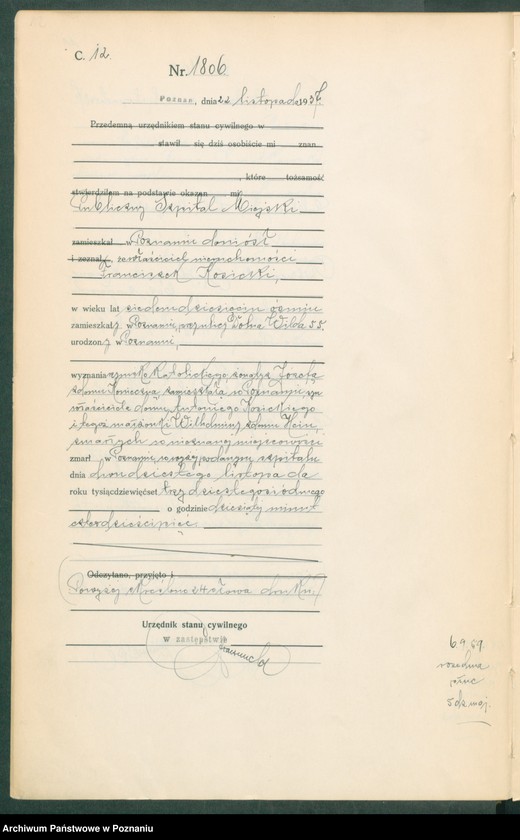 C. 12.
Nr. 1806
POZNAŃ, dnia 22 listopada 1937.
Przedemną urzędnikiem stanu cywilnego w
, stawił się dziś osobiście mi znan
, które tożsamość
stwierdziłem na podstawie okazan mi
Publiczny Szpital Miejski
zamieszkał w Poznaniu doniósł
i zeznał, że właściciel nieruchomości
Franciszek Kosicki,
w wieku lat siedemdziesięciu ósmiu
zamieszkały w Poznaniu, przy ulicy Dolna Wilda 55.
urodzony w Poznaniu,
wyznania rzymsko katolickiego, żonaty z Józefą
z domu zamieszkałą w Poznaniu, syn
właściciela domu Antoniego Kosickiego
i tegoż małżonki Wilhelminy z domu Hein,
zmarłych w nieznanej miejscowości
zmarł w Poznaniu, w wyżej podanym szpitalu
dnia dwudziestego listopada
roku tysiącdziewięćset trzydziestegosiódmego
o godzinie dziesiątej minut
czterdzieścipięć
Odczytano, przyjęto i
Powyżej skreślono 24 słowa druku.
Urzędnik stanu cywilnego
w zastępstwie
69.59
rozedma
płuc
Archiwum Państwowe w Poznaniu